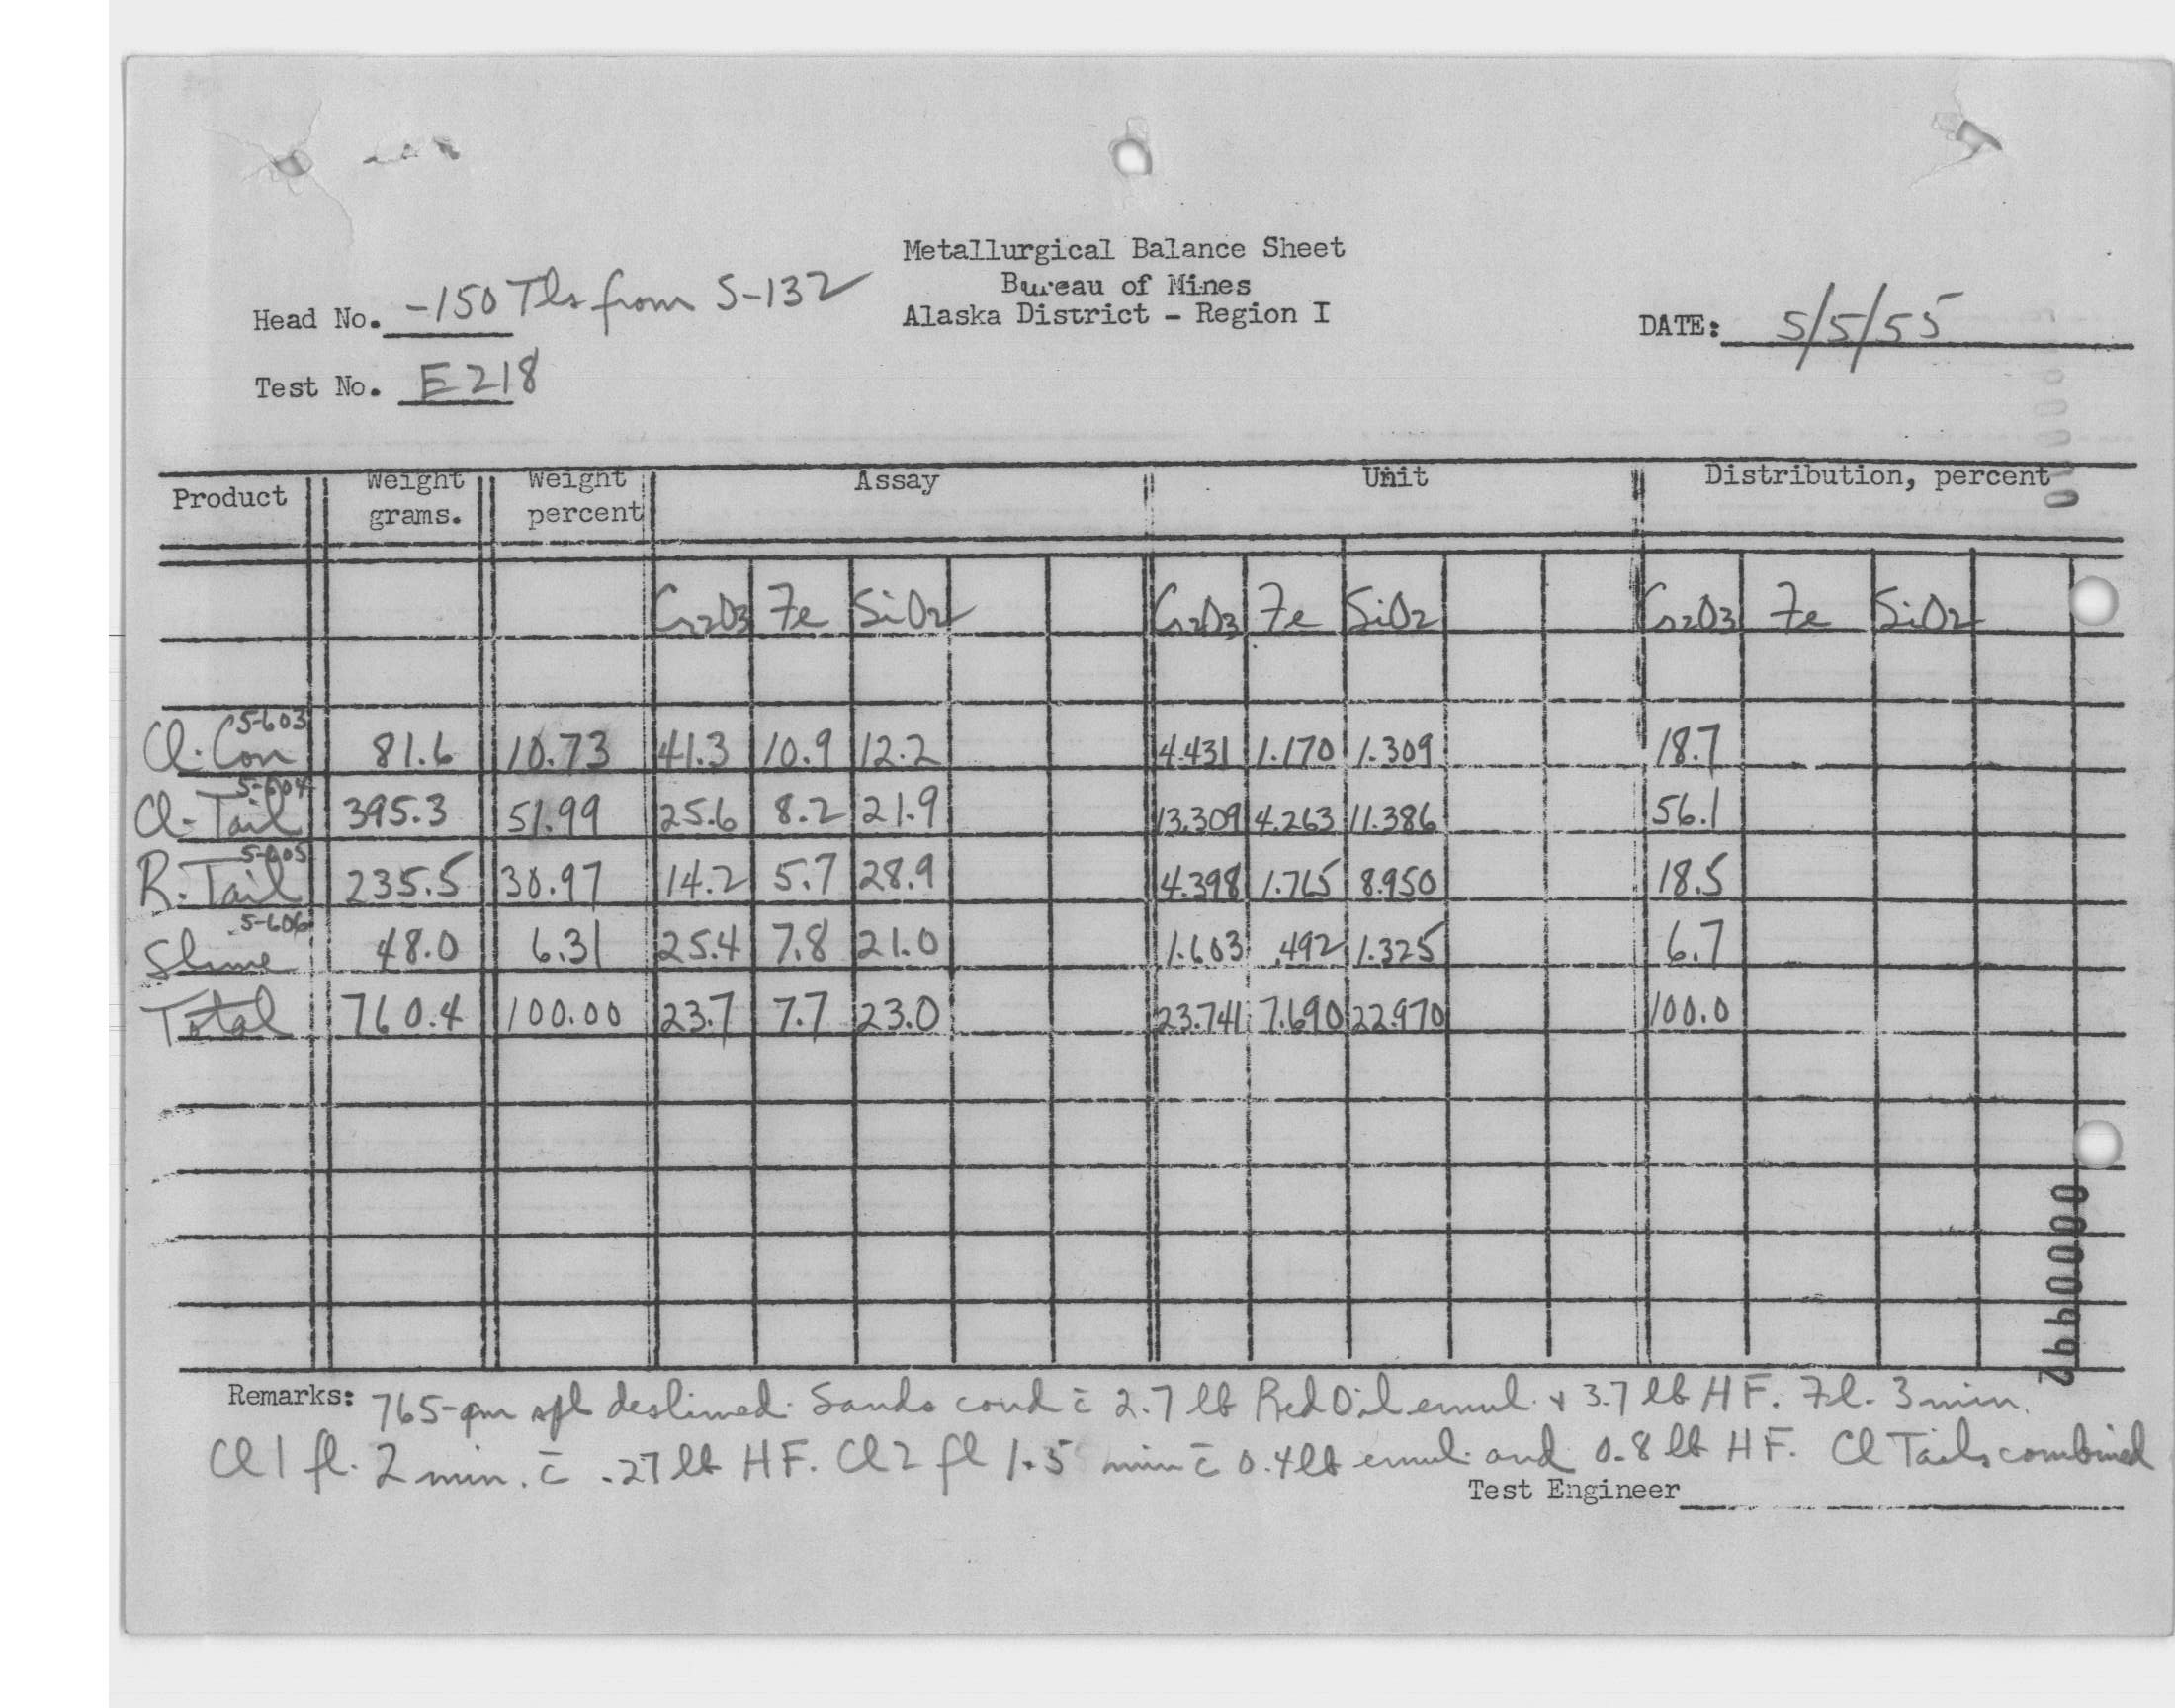 Metallurgical Balance Sheet
Bureau of Mines
Alaska District - Region I
Head No. -150 Tls from S-132
DATE: 5/5/55
Test No. E218
Product Weight grams. Weight percent Assay Unit Distribution, percent
Cr2O3 Fe SiO2 Cr2O3 Fe SiO2 Cr2O3 Fe SiO2
5-603
Cl. Con 81.6 10.73 41.3 10.9 12.2 4.431 1.170 1.309 18.7
5-604
Cl-Tail 395.3 51.99 25.6 8.2 21.9 13.309 4.263 11.386 56.1
5-605
R. Tail 235.5 30.97 14.2 5.7 28.9 4.398 1.765 8.950 18.5
5-606
Slime 48.0 6.31 25.4 7.8 21.0 1.603 .492 1.325 6.7
Total 760.4 100.00 23.7 7.7 23.0 23.741 7.690 22.970 100.0
Remarks: 765-gm spl deslimed. Sands cond c̄ 2.7 lb Red Oil emul. + 3.7 lb HF. Fl. 3 min.
Cl 1 fl. 2 min. c̄ .27 lb HF. Cl 2 fl 1.5 min c̄ 0.4 lb emul. and 0.8 lb HF. Cl Tails combined
Test Engineer